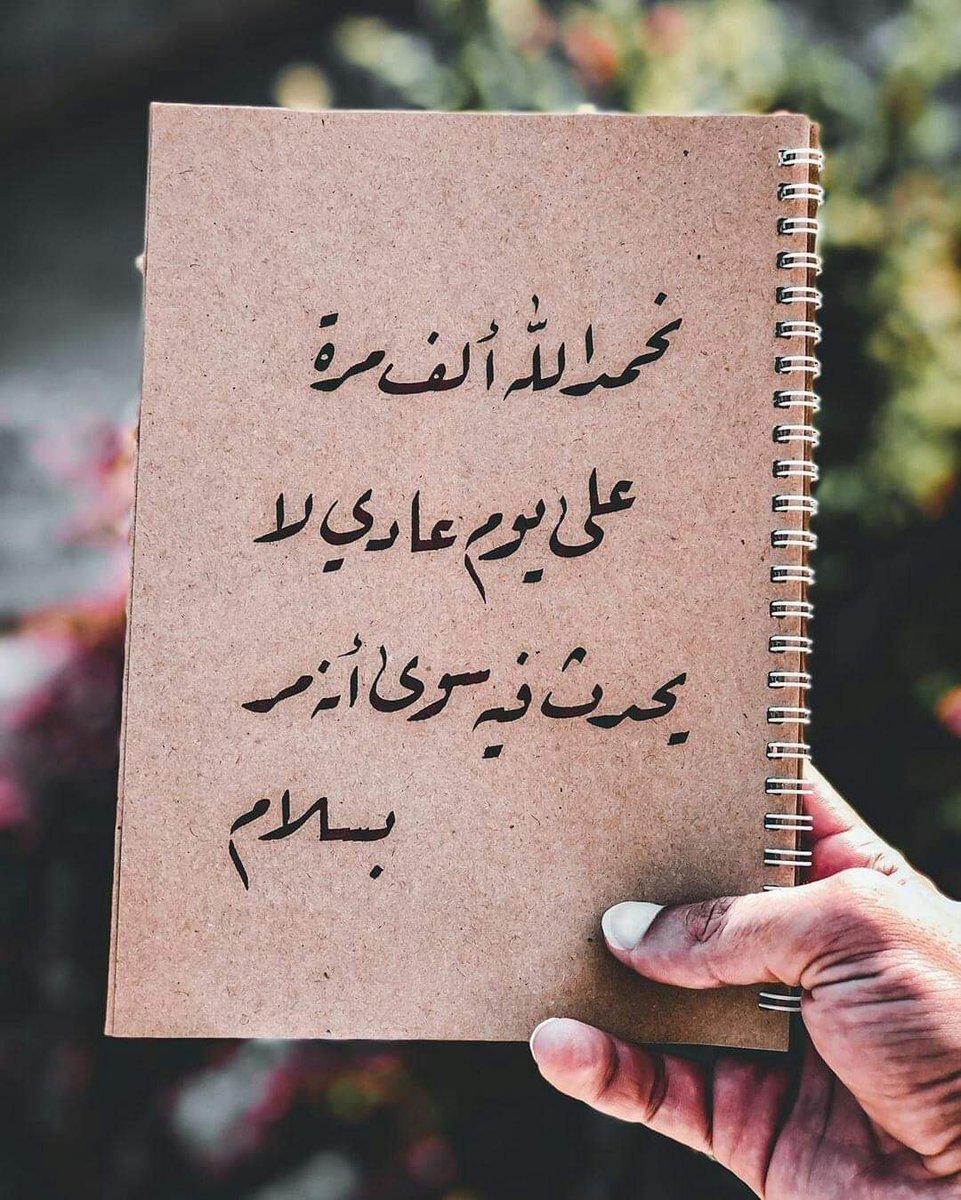 نحمد الله ألف مرة
على يوم عادي لا
يحدث فيه سوى أنه مر
بسلام